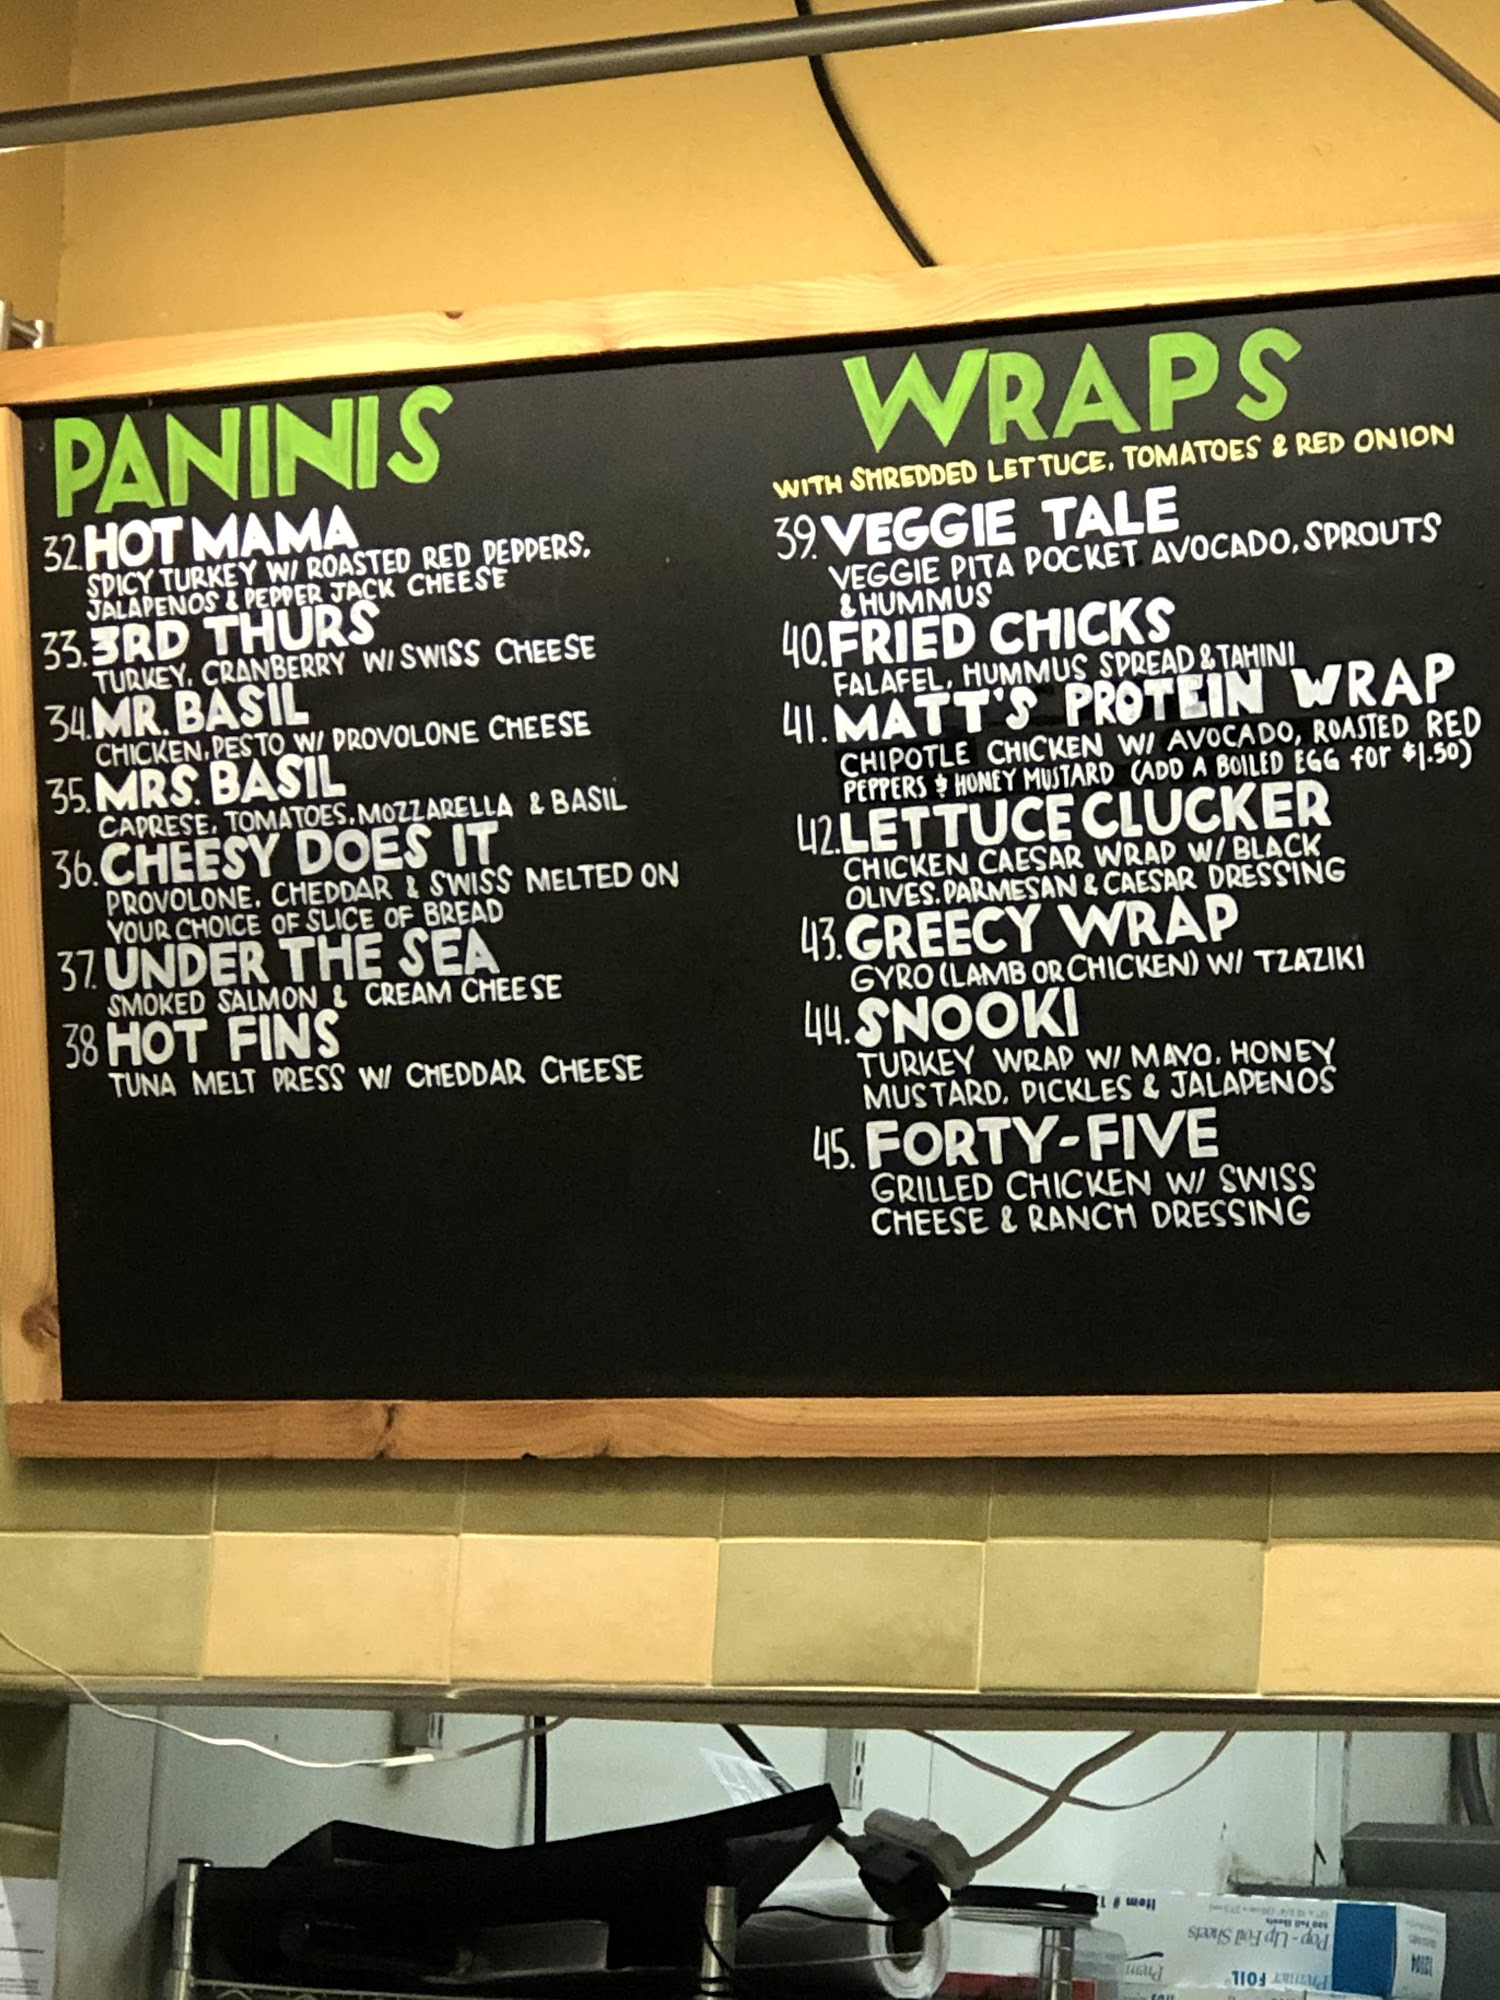 PANINIS
32. HOT MAMA
SPICY TURKEY W/ ROASTED RED PEPPERS,
JALAPENOS & PEPPER JACK CHEESE
33. 3RD THURS
TURKEY, CRANBERRY W/ SWISS CHEESE
34. MR. BASIL
CHICKEN, PESTO W/ PROVOLONE CHEESE
35. MRS. BASIL
CAPRESE, TOMATOES, MOZZARELLA & BASIL
36. CHEESY DOES IT
PROVOLONE, CHEDDAR & SWISS MELTED ON
YOUR CHOICE OF SLICE OF BREAD
37. UNDER THE SEA
SMOKED SALMON & CREAM CHEESE
38 HOT FINS
TUNA MELT PRESS W/ CHEDDAR CHEESE
WRAPS
WITH SHREDDED LETTUCE, TOMATOES & RED ONION
39. VEGGIE TALE
VEGGIE PITA POCKET AVOCADO, SPROUTS
& HUMMUS
40. FRIED CHICKS
FALAFEL, HUMMUS SPREAD & TAHINI
41. MATT'S PROTEIN WRAP
CHIPOTLE CHICKEN W/ AVOCADO, ROASTED RED
PEPPERS & HONEY MUSTARD (ADD A BOILED EGG for $1.50)
42. LETTUCE CLUCKER
CHICKEN CAESAR WRAP W/ BLACK
OLIVES, PARMESAN & CAESAR DRESSING
43. GREECY WRAP
GYRO (LAMB OR CHICKEN) W/ TZAZIKI
44. SNOOKI
TURKEY WRAP W/ MAYO, HONEY
MUSTARD, PICKLES & JALAPENOS
45. FORTY-FIVE
GRILLED CHICKEN W/ SWISS
CHEESE & RANCH DRESSING
Item # 1
Pop-Up Foil Sheets
FOIL
12104